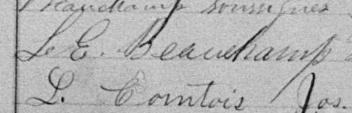 Beauchamp soussignés
L. E. Beauchamp
L. Comtois Jos.